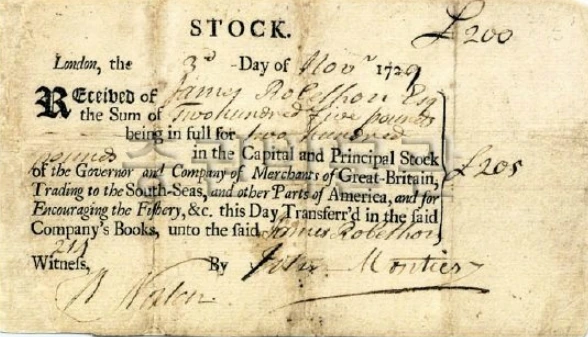 STOCK.
£200
London, the 3d Day of Novr 1729
REceived of James Robethon Esq
the Sum of Two hundred five pounds
being in full for two hundred
pounds in the Capital and Principal Stock
£205
of the Governor and Company of Merchants of Great-Britain,
Trading to the South-Seas, and other Parts of America, and for
Encouraging the Fishery, &c. this Day Transferr'd in the said
Company's Books, unto the said James Robethon
Witness, By John Montier